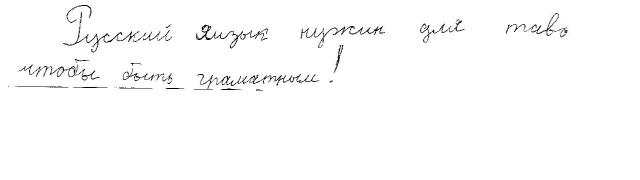 Русский яизык нужин для таво
чтобы быть граматным!